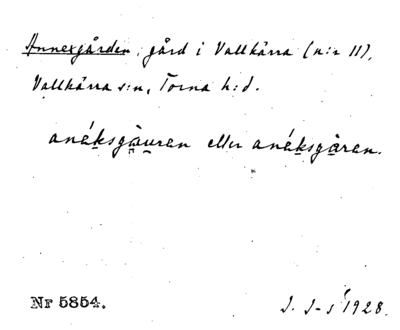 Annexgården, gård i Vallkärra (n:r 11),
Vallkärra s:n, Torna h:d.
anéksgåuran eller anéksgåran.
Nr 5854.
J. J-s 1928.